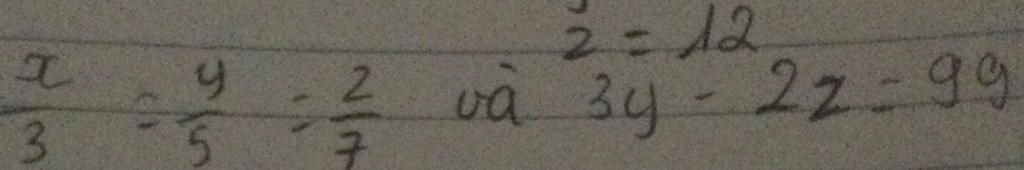 z = 12
x/3 = y/5 = z/7 và 3y - 2z = 99